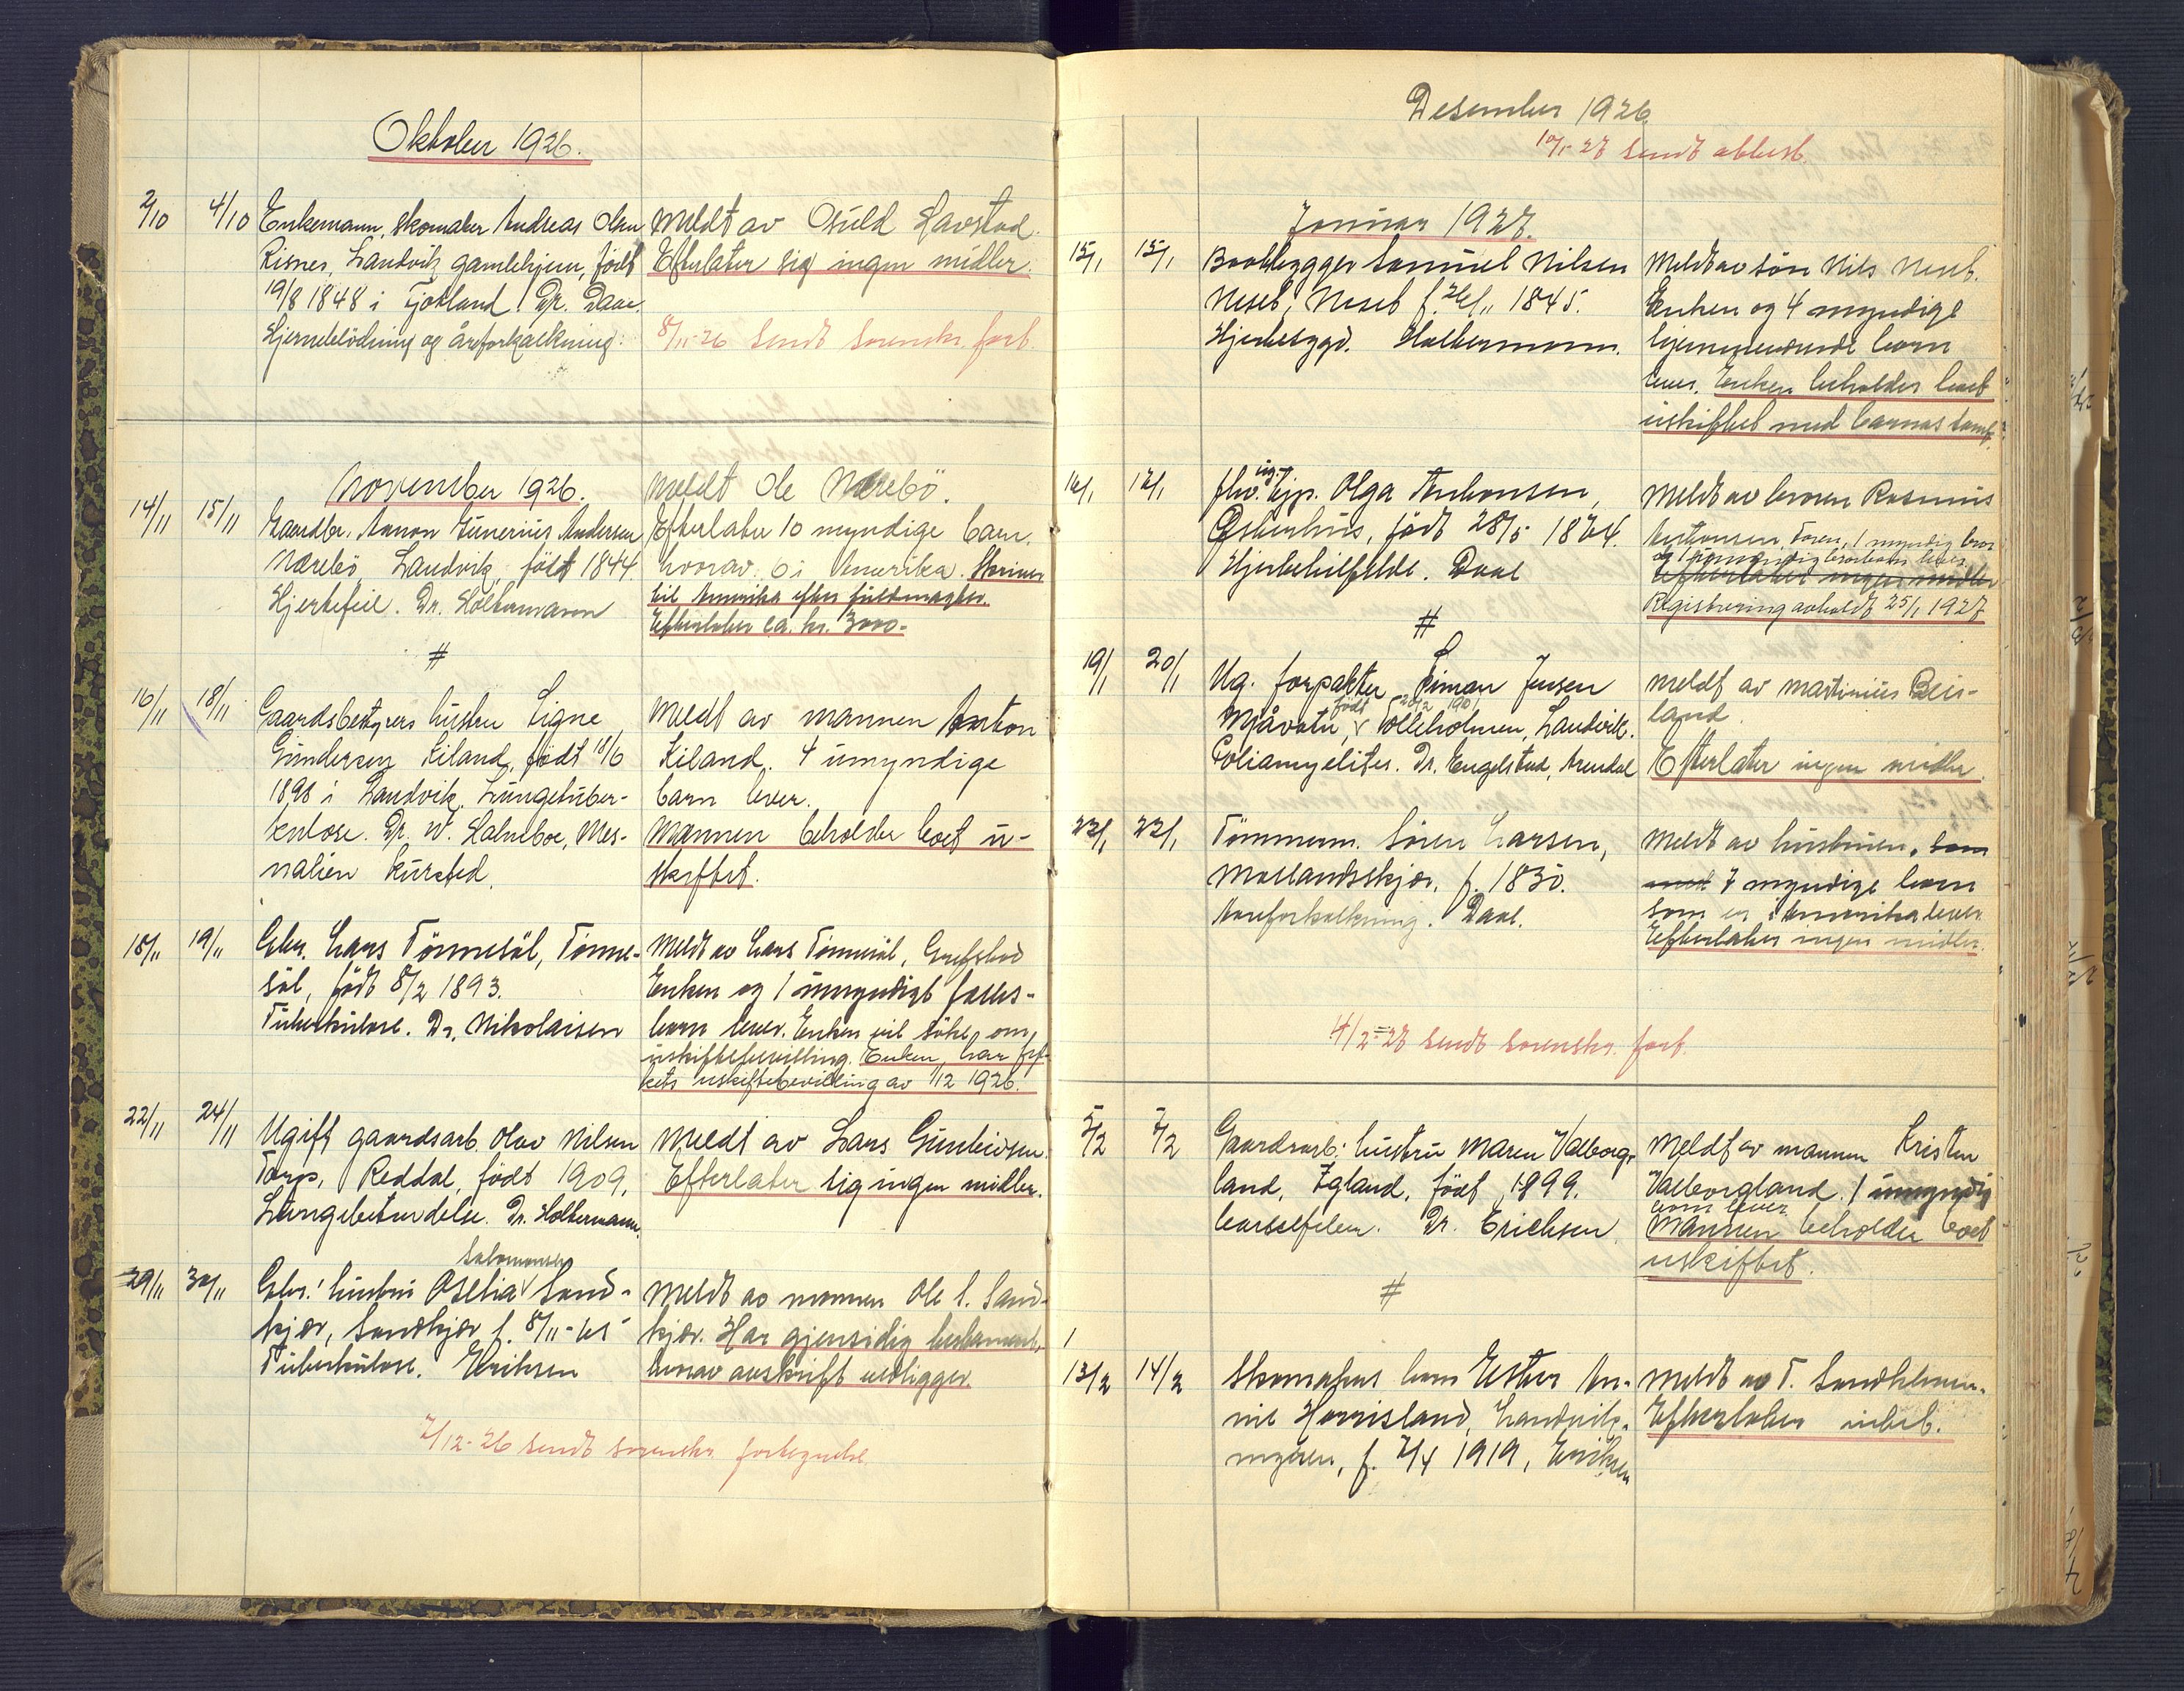 Oktober 1926.
2/10 4/10 Enkemann, skomaker Andreas Olsen
Risnes, Landvik gamlehjem, født
19/8 1848 i Fjotland. Dr. Daae.
Hjerneblødning og åreforkalkning.
Meldt av Osuld Havstad.
Efterlater sig ingen midler.
8/11-26 Sendt Sorenskr. fort.
November 1926.
14/11 15/11 Gaardbr. Aanon Gunerius Andersen
Nærebö, Landvik, født 1844.
Hjertefeil. Dr. Holtermann
#
Meldt Ole Nærebö.
Efterlater 10 myndige barn.
hvorav 6 i Amerika. Skriver
til Amerika efter fuldmagter.
Efterlater ca. kr. 3000-
16/11 18/11 Gaardsbestyrers hustru Signe
Gundersen Kiland, født 18/6
1898 i Landvik. Lungetuber-
kulose. Dr. W. Holmboe, Mes-
nalien kursted.
Meldt av mannen Anton
Kiland. 4 umyndige
barn lever.
Mannen beholder boet u-
skiftet.
18/11 19/11 Gbr. Lars Tönnesöl, Tönne-
söl, født 8/2 1893.
Tuberkulose. Dr. Nikolaisen
Meldt av Lars Tönnesöl, Grefstad
Enken og 1 umyndigt felles-
barn lever. Enken vil søke om
uskiftebevilling. Enken har fyl-
kets uskiftebevilling av 1/12 1926.
22/11 24/11 Ugift gaardsarb. Olav Nilsen
Torp, Reddal, født 1909.
Lungebetendelse. Dr. Holtermann.
Meldt av Lars Guntveitsen.
Efterlater sig ingen midler.
Salomonsen
29/11 30/11 Gbr. hustru Oselia Sand-
kjær, Sandkjær f. 8/11-65
Tuberkulose. Eriksen
Meldt av mannen Ole S. Sand-
kjær. Har gjensidig testament,
hvorav avskrift vedligger.
7/12-26 sendt sorenskr. fortegnelse.
Desember 1926.
10/1-27 sendt attest.
Januar 1927.
15/1 15/1 Baatbygger Samuel Nilsen
Neset, Neset f. 26/11 1845.
Hjertesygd. Holtermann.
Meldt av søn Nils Neset.
Enken og 4 myndige
hjemmeværende barn
lever. Enken beholder boet
uskiftet med barnas samt.
16/1 17/1 fhv. ug. tjp. Olga Antonsen,
Østerhus, født 28/5 1864.
Hjertetilfelde. Daae
#
Meldt av broren Rasmus
Antonsen, Søren, 1 myndig bror
og 1 umyndig brorbarn lever.
Efterlater ingen midler
Registrering avholdt 25/1 1927
19/1 20/1 Ug. forpakter Simon Jensen
Mjåvatn, født 28/2 1901 Tolleholmen, Landvik.
Poliomyelites. Dr. Engelstad, Arendal
Meldt av Martinius Beis-
land.
Efterlater ingen midler.
22/1 22/1 Tömmerm. Sören Larsen,
Morlandskjær, f. 1830.
Aareforkalkning. Daae.
Meldt av hustruen, som
med 7 myndige barn
som er i Amerika lever
Efterlater ingen midler.
4/2-27 sendt sorenskr. fort.
5/2 7/2 Gaardsarb. hustru Maren Valborg-
land, Egland, født 1899.
barselfeber. Dr. Erichsen.
#
Meldt av mannen Kristen
Valborgland. 1 umyndig
barn lever
Mannen beholder boet
uskiftet.
1
13/2 14/2 Skomakers barn Ester An-
nie Horrisland, Landviks-
myren, f. 7/4 1919, Eriksen
Meldt av T. Sandkleven.
Efterlater intet.